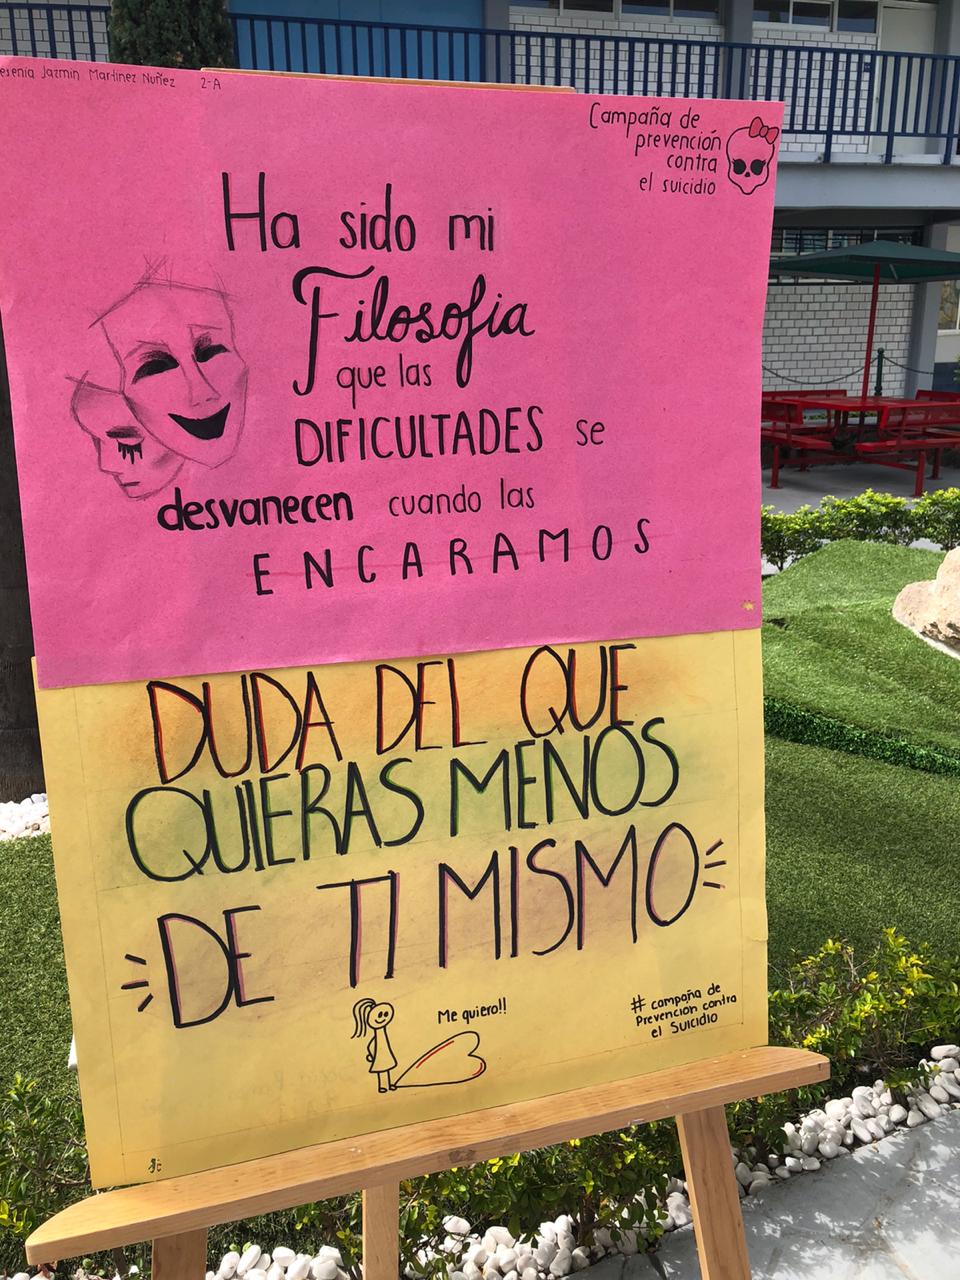 esenia Jazmin Martinez Nuñez 2-A
Campaña de
prevención
contra
el suicidio
Ha sido mi
Filosofia
que las
DIFICULTADES se
desvanecen cuando las
ENCARAMOS
DUDA DEL QUE
QUIERAS MENOS
DE TI MISMO
Me quiero!!
# campaña de
Prevención contra
el Suicidio